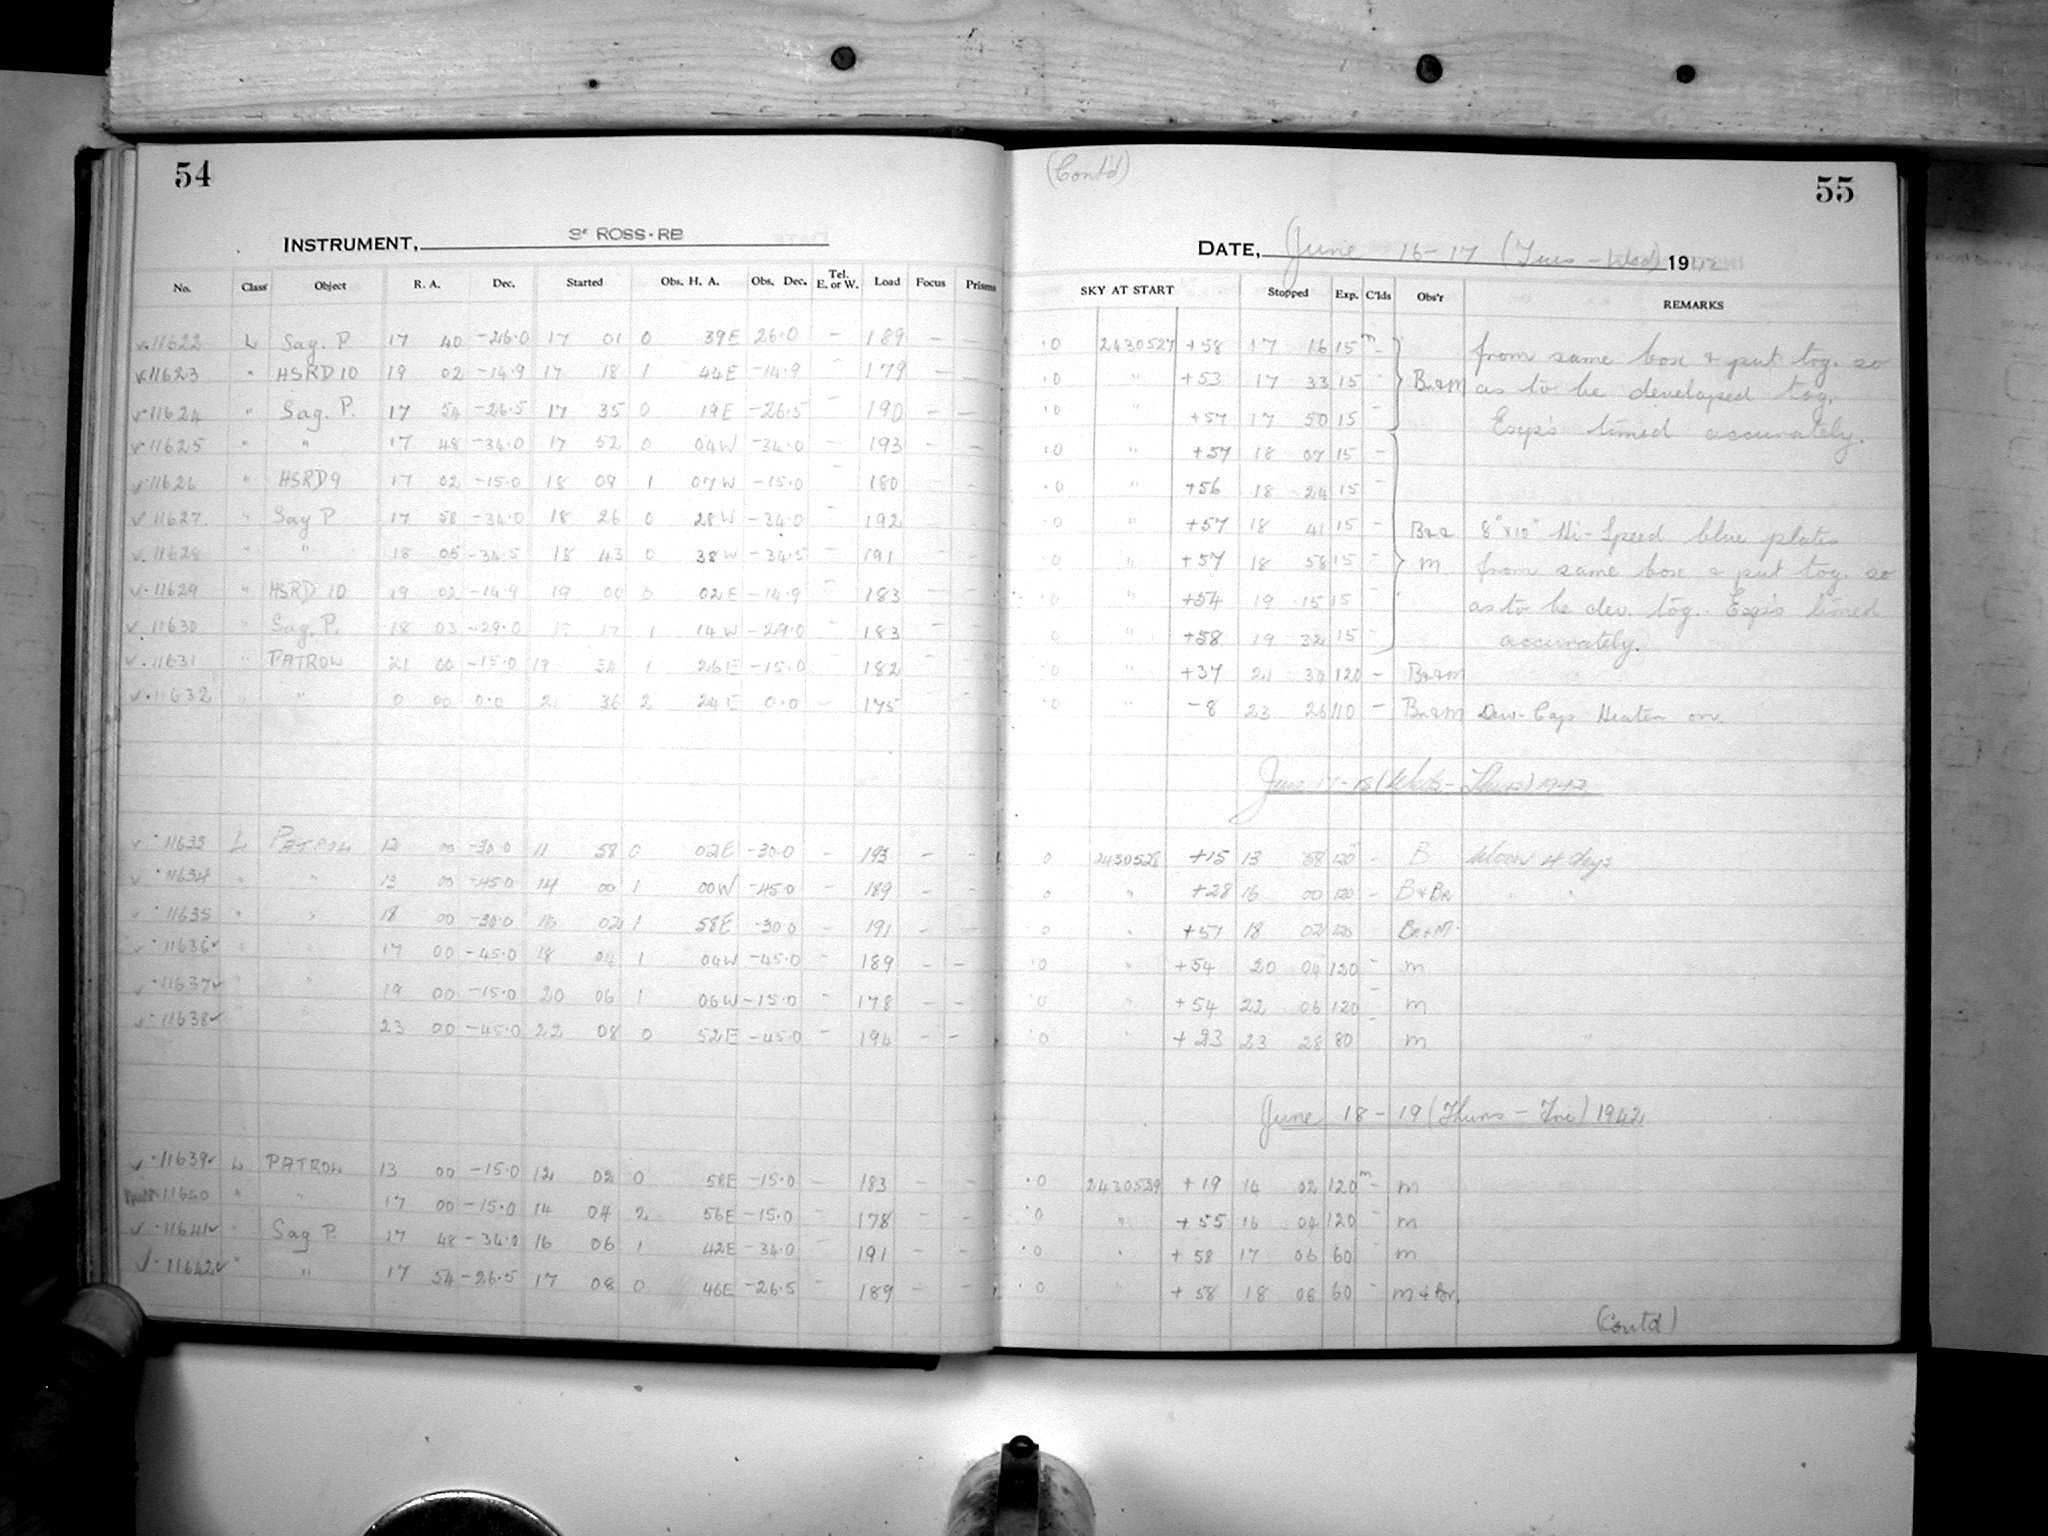 54
INSTRUMENT, 3" ROSS-RB
No. Class Object R. A. Dec. Started Obs. H. A. Obs. Dec. Tel. E. or W. Load Focus Prisms
v.11622 L Sag. P. 17 40 -26.0 17 01 0 39E 26.0 - 189 - -
v.11623 " HSRD 10 19 02 -14.9 17 18 1 44E -14.9 - 179 - -
v.11624 " Sag. P. 17 54 -26.5 17 35 0 19E -26.5 - 190 - -
v.11625 " " 17 48 -34.0 17 52 0 04W -34.0 193 - -
v.11626 " HSRD9 17 02 -15.0 18 09 1 07W -15.0 - 180 - -
v.11627 " Sag P 17 58 -34.0 18 26 0 28W -34.0 - 192 - -
v.11628 " " 18 05 -34.5 18 43 0 38W -34.5 - 191 - -
v.11629 " HSRD 10 19 02 -14.9 19 00 0 02E -14.9 - 183 - -
v.11630 " Sag. P. 18 03 -29.0 17 1 14W -29.0 - 183 - -
v.11631 " PATROL 21 00 -15.0 19 34 1 26E -15.0 - 182 - -
v.11632 " " 0 00 0.0 21 36 2 24E 0.0 - 175 - -
v.11633 L PATROL 12 00 -30.0 11 58 0 02E -30.0 - 193 - -
v.11634 " " 13 00 -45.0 14 00 1 00W -45.0 - 189 - -
v.11635 " " 18 00 -30.0 16 02 1 58E -30.0 - 191 - -
v.11636v " " 17 00 -45.0 18 04 1 04W -45.0 - 189 - -
v.11637v " " 19 00 -15.0 20 06 1 06W -15.0 - 178 - -
v.11638v " " 23 00 -45.0 22 08 0 52E -45.0 - 194 - -
v.11639v L PATROL 13 00 -15.0 12 02 0 58E -15.0 - 183 - -
11640 " " 17 00 -15.0 14 04 2 56E -15.0 - 178 - -
v.11641v " Sag P. 17 48 -34.0 16 06 1 42E -34.0 - 191 - -
v.11642v " " 17 54 -26.5 17 08 0 46E -26.5 - 189 - -
(Cont'd)
55
DATE, June 16-17 (Tues - Wed) 1942
SKY AT START Stopped Exp. C'lds Obs'r REMARKS
.0 2430527 +58 17 16 15m - from same box & put tog. so
.0 " +53 17 33 15 - Br&M as to be developed tog.
.0 " +57 17 50 15 - Exp's timed accurately.
.0 " +57 18 07 15 -
.0 " +56 18 24 15 -
.0 " +57 18 41 15 - Br& 8"x10" Hi-Speed blue plates
.0 " +57 18 58 15 - M from same box & put tog. so
.0 " +54 19 15 15 - as to be dev. tog. Exp's timed
.0 " +58 19 32 15 - accurately.
.0 " +37 21 34 120 - Br&M
.0 " -8 23 26 110 - Br&M Dew-Cap Heater on.
June 17-18 (Weds - Thurs) 1942
0 2430528 +15 13 58 120 - B Moon 4 days
0 " +28 16 00 120 - B&Br " "
0 " +57 18 02 120 Br&M
.0 " +54 20 04 120 - m
.0 " +54 22 06 120 - m
.0 " +23 23 28 80 m "
June 18-19 (Thurs - Fri) 1942
.0 2430529 +19 14 02 120m - m
.0 " +55 16 04 120 - m
.0 " +58 17 06 60 - m
.0 " +58 18 08 60 - m & Br.
(Contd)